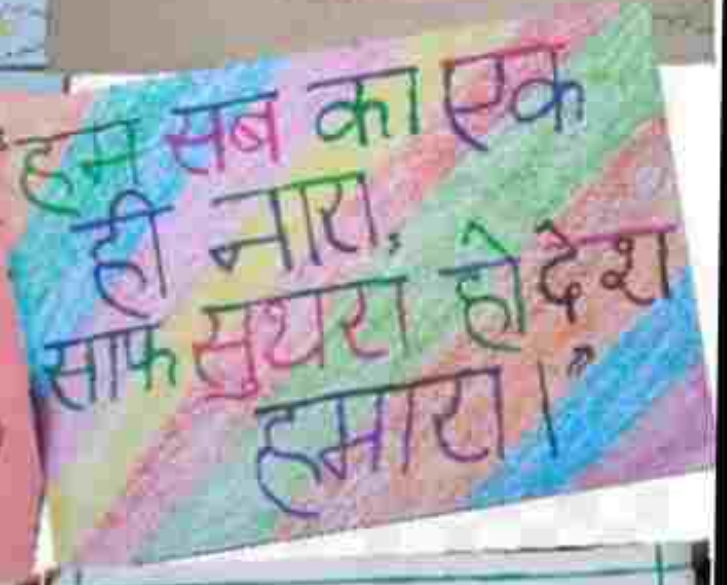 हम सब का एक
ही नारा,
साफ सुथरा हो देश
हमारा।"